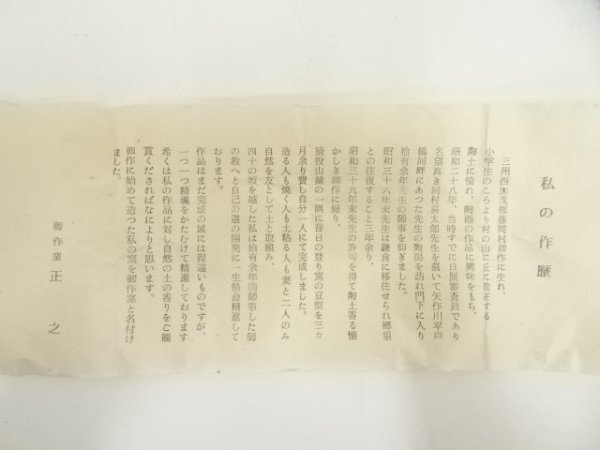 私の作歴
三州西加茂郡藤岡村御作に生れ、
小学生のころより村の山に丘に散在する
陶土に憧れ、陶器の作品に興味をもち、
昭和二十八年、当時すでに日展審査員であり
名望高き河村喜太郎先生を慕いて矢作川平戸
橋河畔にあつた先生の陶房を訪れ門下に入り
拾有余年先生の師事を仰ぎました。
昭和三十六年末先生は鎌倉に移住せられ郷里
との往復すること三年余り、
昭和三十九年末先生の許可を得て陶土香る懐
かしき御作に帰り、
猿投山麓の一隅に昔日の登り窯の豆窯を三ヵ
月余り費し自分一人にて完成しました。
造る人も焼く人も土粘る人も妻と二人のみ
自然を友として土と取組み、
四十の坂を越した私は拾有余年間師事した師
の教へと自己の道の開発に一生懸命精進して
おります。
作品はまだ完成の域には程遠いものですが、
一つ一つ精魂をかたむけて精進しております
希くは私の作品に対し自然の土の香りをご観
賞くださればなによりと思います。
御作に始めて造つた私の窯を御作窯と名付け
ました。
御作窯 正之